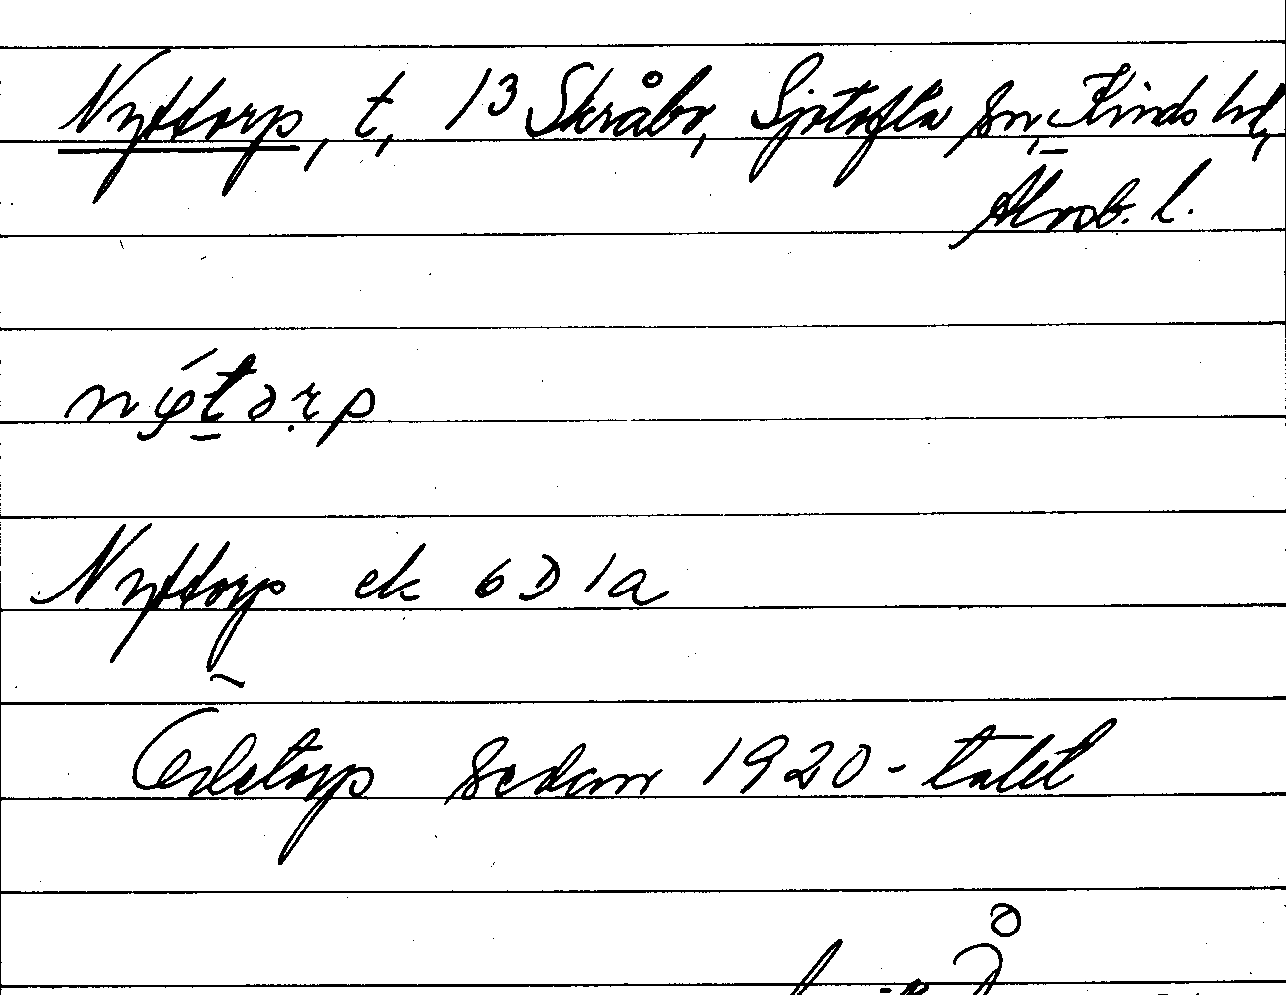 Nyttorp, t, 13 Skråbo, Sjötofta sn, Kinds hd,
Älvsb. l.
nýtɔrp
Nyttorp ek 6D 1a
Ödetorp sedan 1920-talet